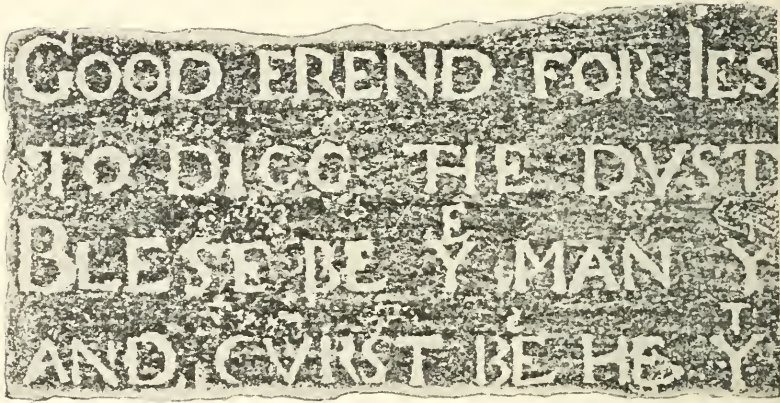 GOOD FREND FOR IES
TO DIGG THE DVST
BLESE BE Yᴱ MAN Y
AND CVRST BE HE Yᵀ